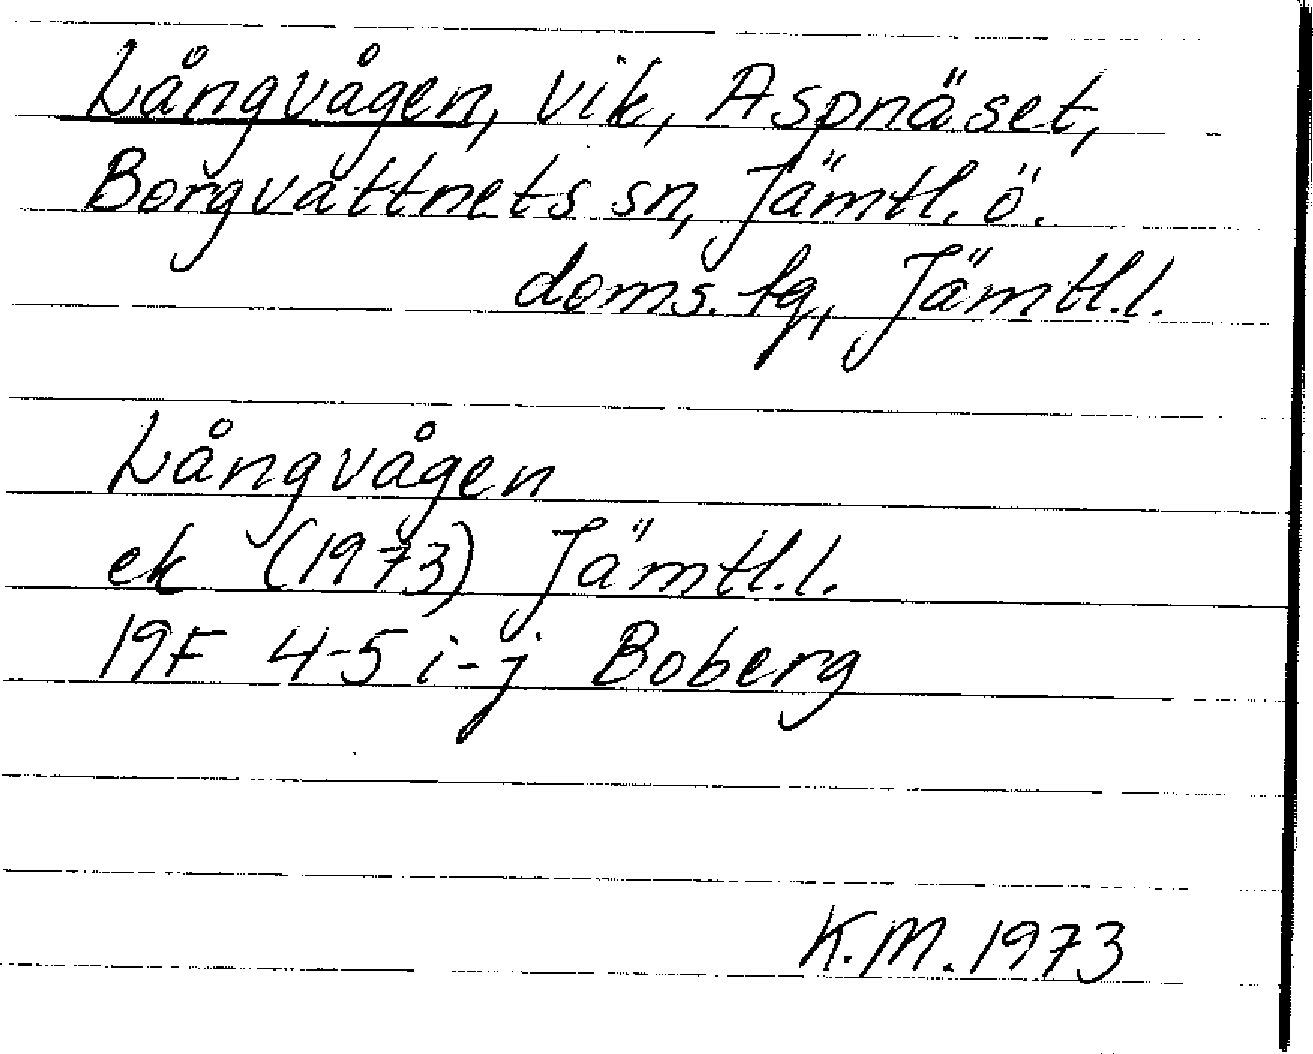 Långvågen, vik, Aspnäset,
Borgvattnets sn, Jämtl. ö.
doms. fg, Jämtl. l.
Långvågen
ek (1973) Jämtl. l.
19F 4-5 i-j Boberg
K.M. 1973